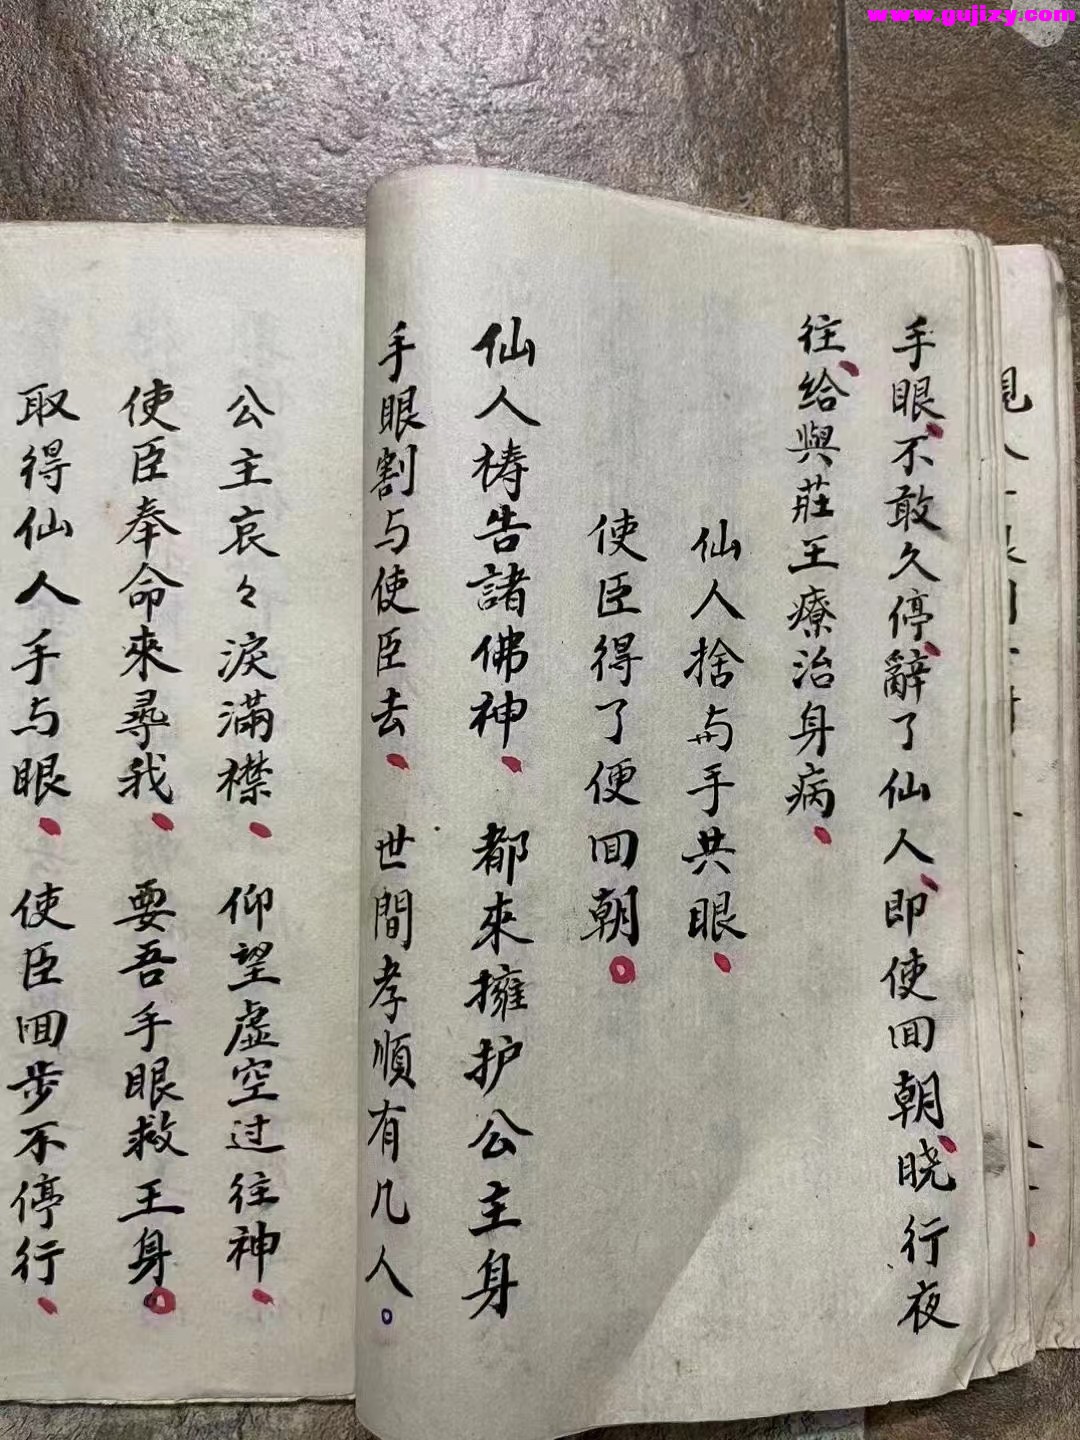 www.gujizy.com
手眼、不敢久停、辭了仙人、即使回朝、晓行夜
往、給與莊王療治身病、
仙人捨与手共眼、
使臣得了便回朝。
仙人梼告諸佛神、都來擁护公主身
手眼割与使臣去、世間孝順有几人。
公主哀々淚滿襟、仰望虛空过往神、
使臣奉命來尋我、要吾手眼救王身。
取得仙人手与眼、使臣回步不停行、